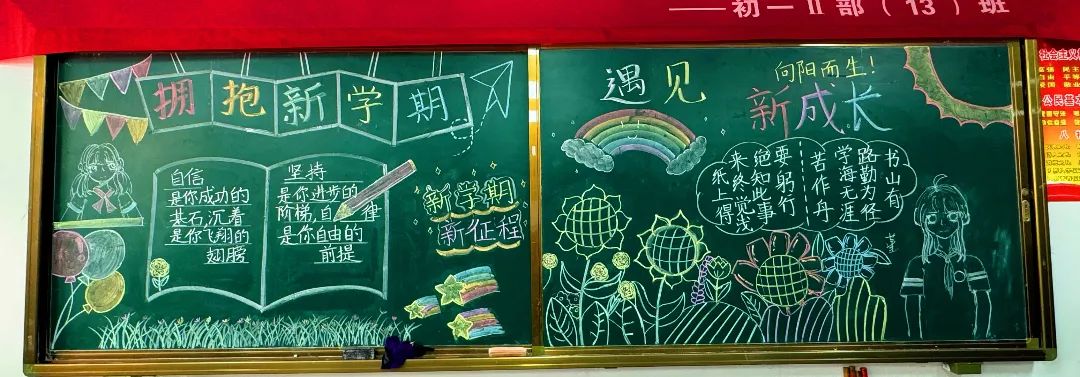 ——初一Ⅱ部(13)班
拥抱新学期
自信
是你成功的
基石,沉着
是你飞翔的
翅膀
坚持
是你进步的
阶梯,自律
是你自由的
前提
新学期
新征程
遇见
向阳而生!
新成长
书山有
路勤为径
学海无涯
苦作舟
要躬行
绝知些事
来终觉浅
纸上得
社会主义
富强 民主
自由 平等
爱国 敬业
公民基本